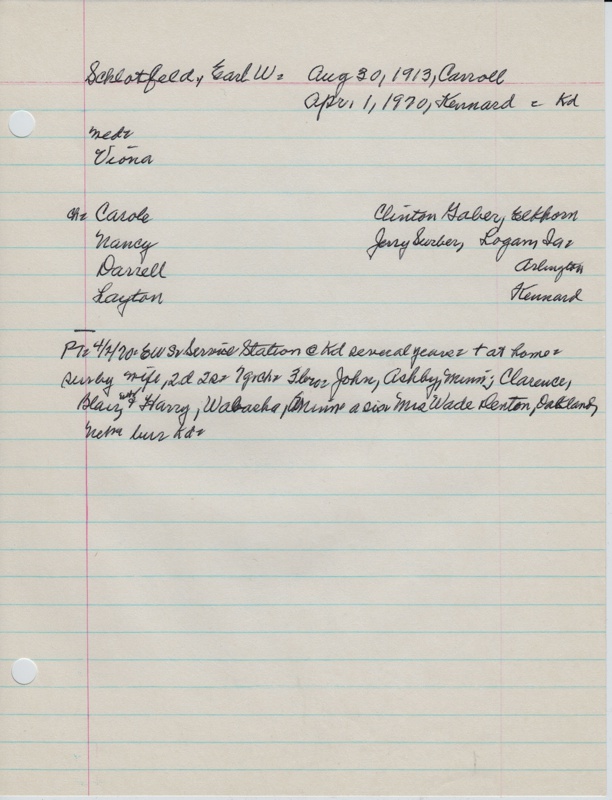 Schlotfeld, Earl W= Aug 30, 1913, Carroll
Apr. 1, 1970, Kennard = Kd
med=
Viona
ch= Carole Clinton Gaber, Elkhorn
Nancy Jerry Surber, Logan, Ia=
Darrell Arlington
Layton Kennard
PT= 4/2/70= EWS= Service Station @ Kd several years= + at home=
surv by wife, 2d 2s= 7grch= 3bro= John, Ashby, Minn; Clarence,
Blair, & Harry, Wabasha, Minn= a sis= Mrs Wade Denton, Oakland,
Neb= bur Kd=